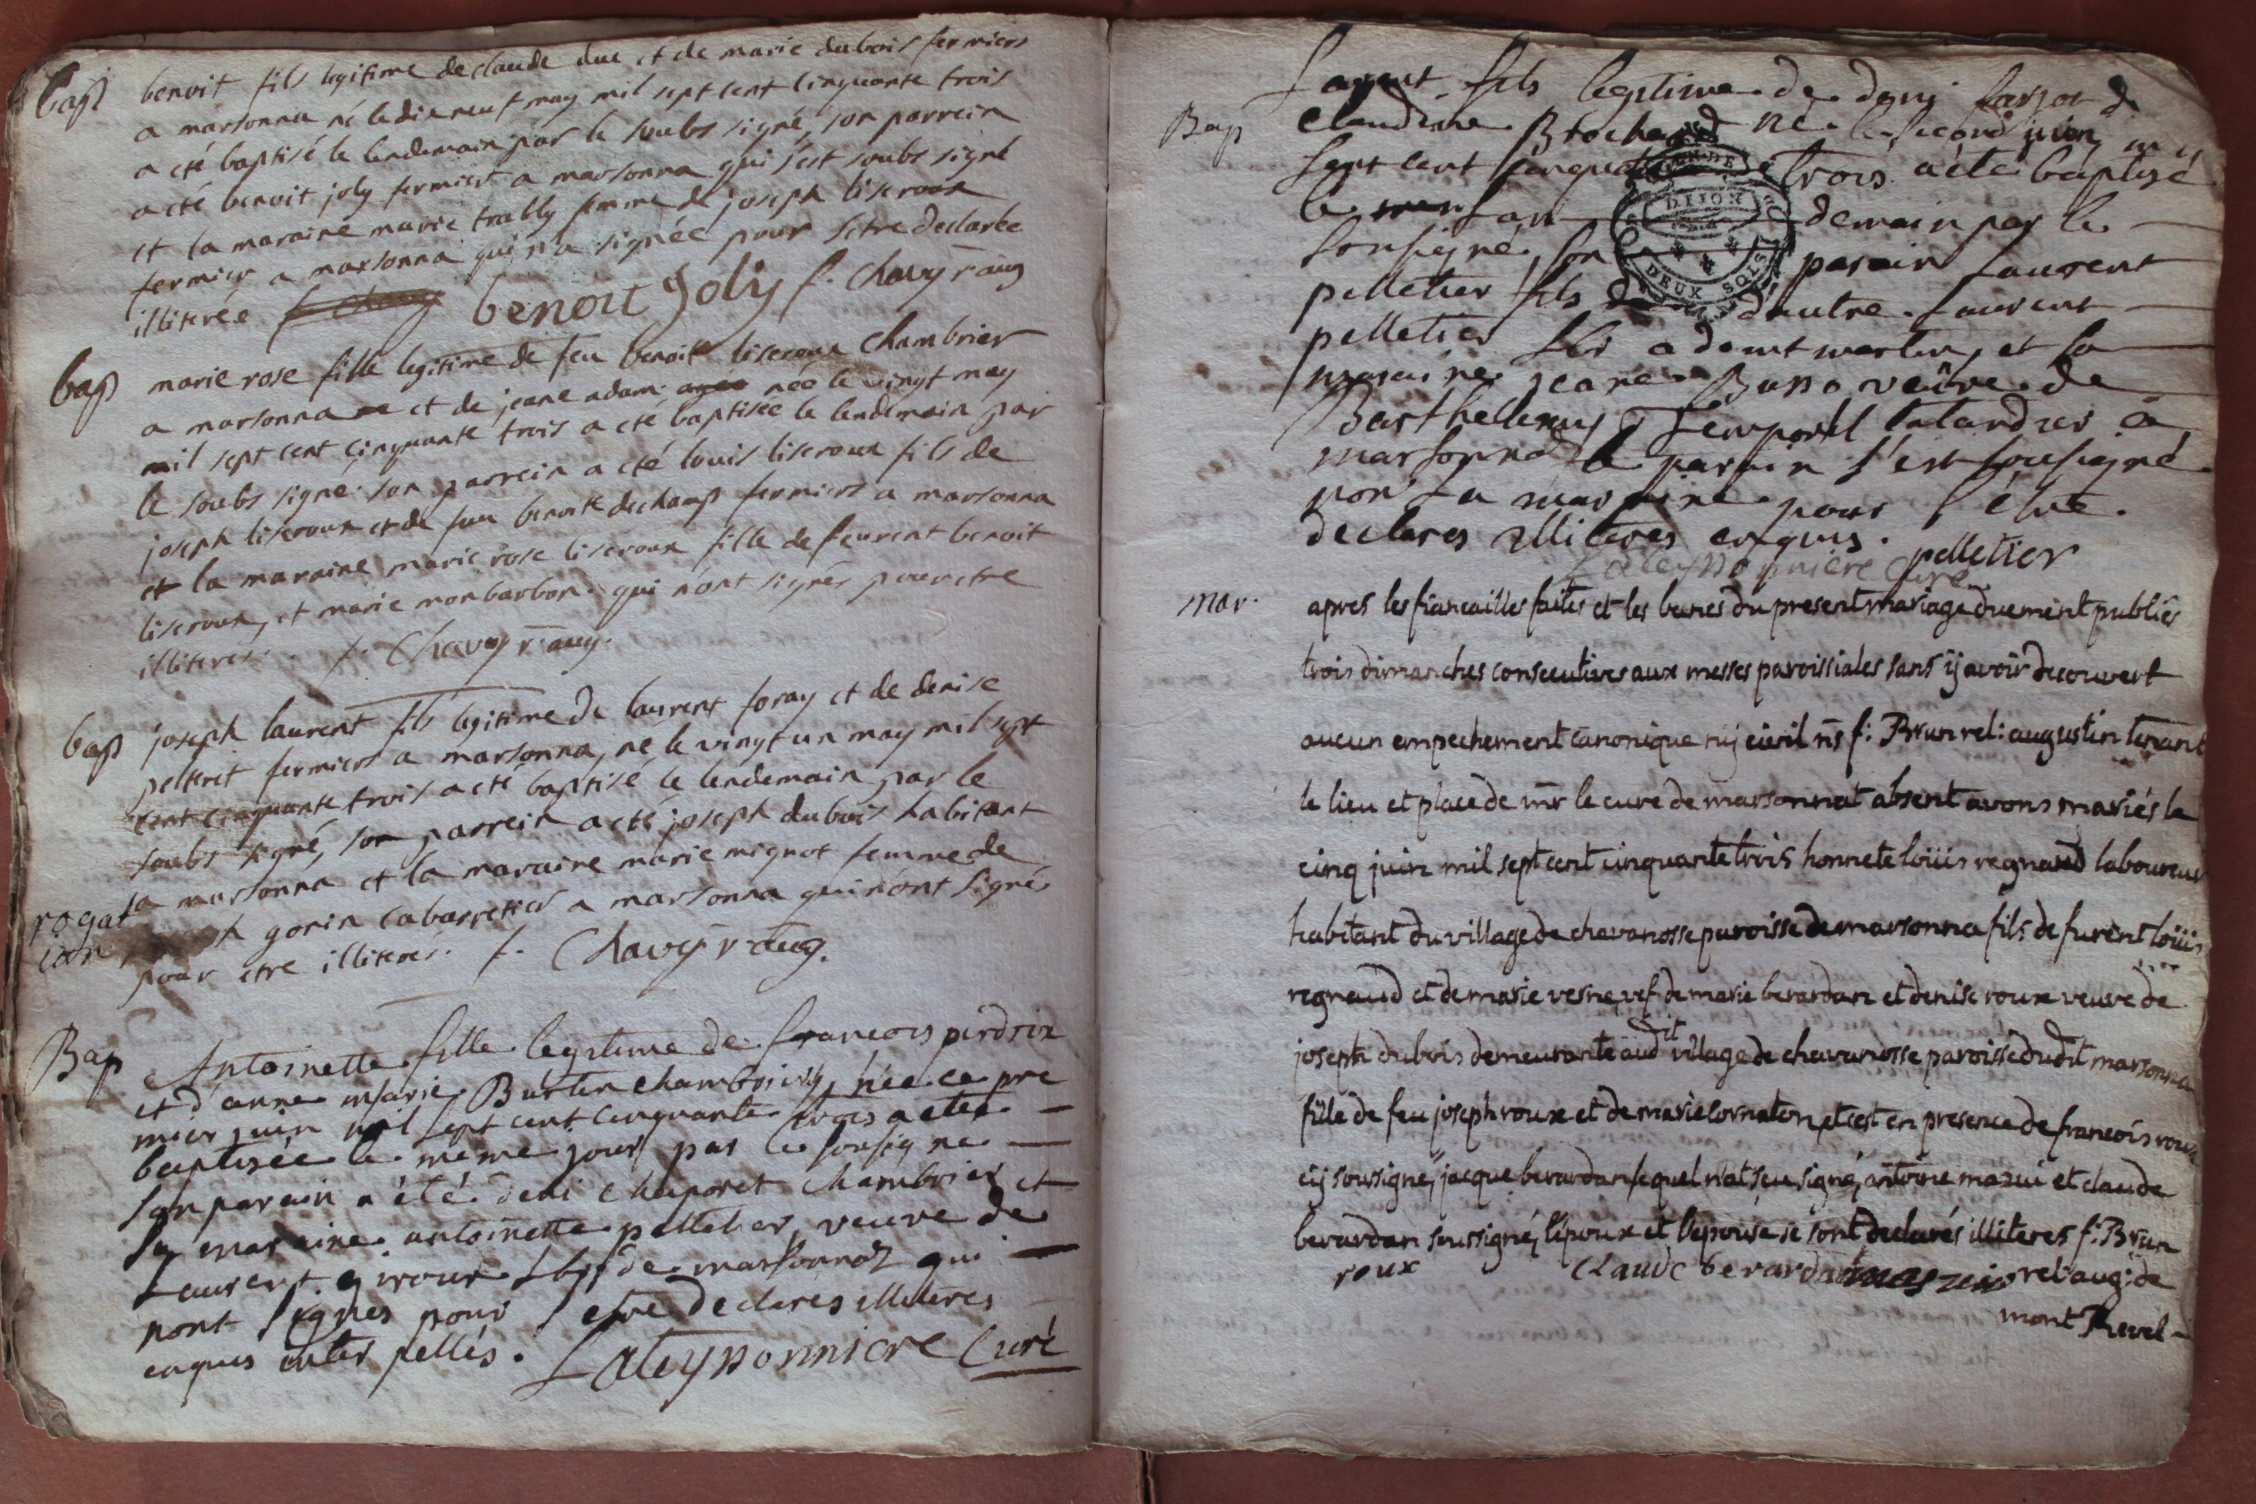 bapt
benoit fils legitime de claude duc et de marie dubois fermiers
a marsonna né le dix neuf may mil sept cent cinquante trois
a eté baptisé le lendemain par le soubs signé, son parrein
a eté benoit joly fermier a marsonna qui s'est soubs signé
et la maraine marie trably femme de joseph liseroux
fermier a marsonna qui n'a signée pour setre declarée
illiterée benoit Joly f. Chavy r. aug
bapt
marie rose fille legitime de feu benoit liseroux chambrier
a marsonna et de jeane adam née le vingt may
mil sept cent cinquante trois a eté baptisée le lendemain par
le soubs signé. son parrein a eté louis liseroux fils de
joseph liseroux et de feu benoite dechamp fermiers a marsonna
et la maraine marie rose liseroux fille de feurent benoit
liseroux, et marie monbarbon. qui n'ont signés pour etre
illiteres. f. Chavy r. aug.
bapt
joseph laurent fils legitime de laurent foray et de denise
pelteret fermiers a marsonna, né le vingt un may mil sept
cent cinquante trois a eté baptisé le lendemain par le
soubs signé, son parrein a eté joseph dubois habitant
a marsonna et la maraine marie mignot femme de
gorin cabarretier a marsonna qui n'ont signés
pour etre illiteres. f. Chavy r. aug.
rogat
Bap
Antoinette fille legitime de francois perdrix
et d'anne marie Burtin chambriers, née ce pre
mier juin mil sept cent cinquante trois a eteé
baptisée le meme jour par le sousigné
son parain a été deni chaporet chambrier et
sa maraine antoinette pelletier, veuve de
Laurent giroux de marsonnaz qui
n'ont signés pour s'etre declares illiteres
enquis interpellés. Lateyssonniere Curé
Bap
Laurent fils legitime de deni
Claudine Brochard né le second juin m
sept cent cinquante trois a ete baptisé
le lan demain par le
sousigné, son parain Laurent
pelletier fils d'autre Laurent
pelletier a domt martin, et sa
maraine jeane Basso veuve de
Barthellemy Temporel talandier a
marsonna le parain s'est sousigné
non la maraine pour s'etre
declares illiteres enquis. pelletier
Lateyssonniere curé
mar.
apres les fiancailles faites et les bancs du present mariage duement publiés
trois dimanches consecutives aux messes paroissiales sans ÿ avoir decouvert
aucun empechement canonique nÿ civil n͞s f: Brun rel: augustin tenant
le lieu et place de m͞r le curé de marsonnat absent avons mariés le
cinq juin mil sept cent cinquante trois honnete loüis regnaud laboureur
habitant du village de chavanosse paroisse de marsonna fils de furent loüis
regnaud et de marie vesne vef de marie berardan et denise roux veuve de
joseph dubois demeurante aud dit village de chavanosse paroisse dudit marsonna
fille de feu joseph roux et de marie cornaton, et c'est en presence de francois roux
cÿ soussigné, jacque berardan lequel n'at sçu signé, antoine mazui et claude
berardan soussigné, l'époux et l'epouse se sont declarés illiteres f: Brun
roux claude berardan mazuis rel: aug: de
mont Revel
DIJON
DEUX SOLS